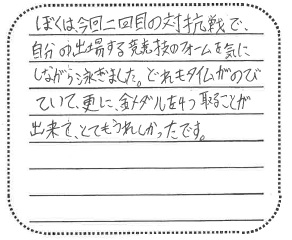 ぼくは今回二回目の対抗戦で、
自分の出場する競技のフォームを気に
しながら泳ぎました。どれもタイムがのび
ていて、更に、金メダルを4つ取ることが
出来て、とてもうれしかったです。